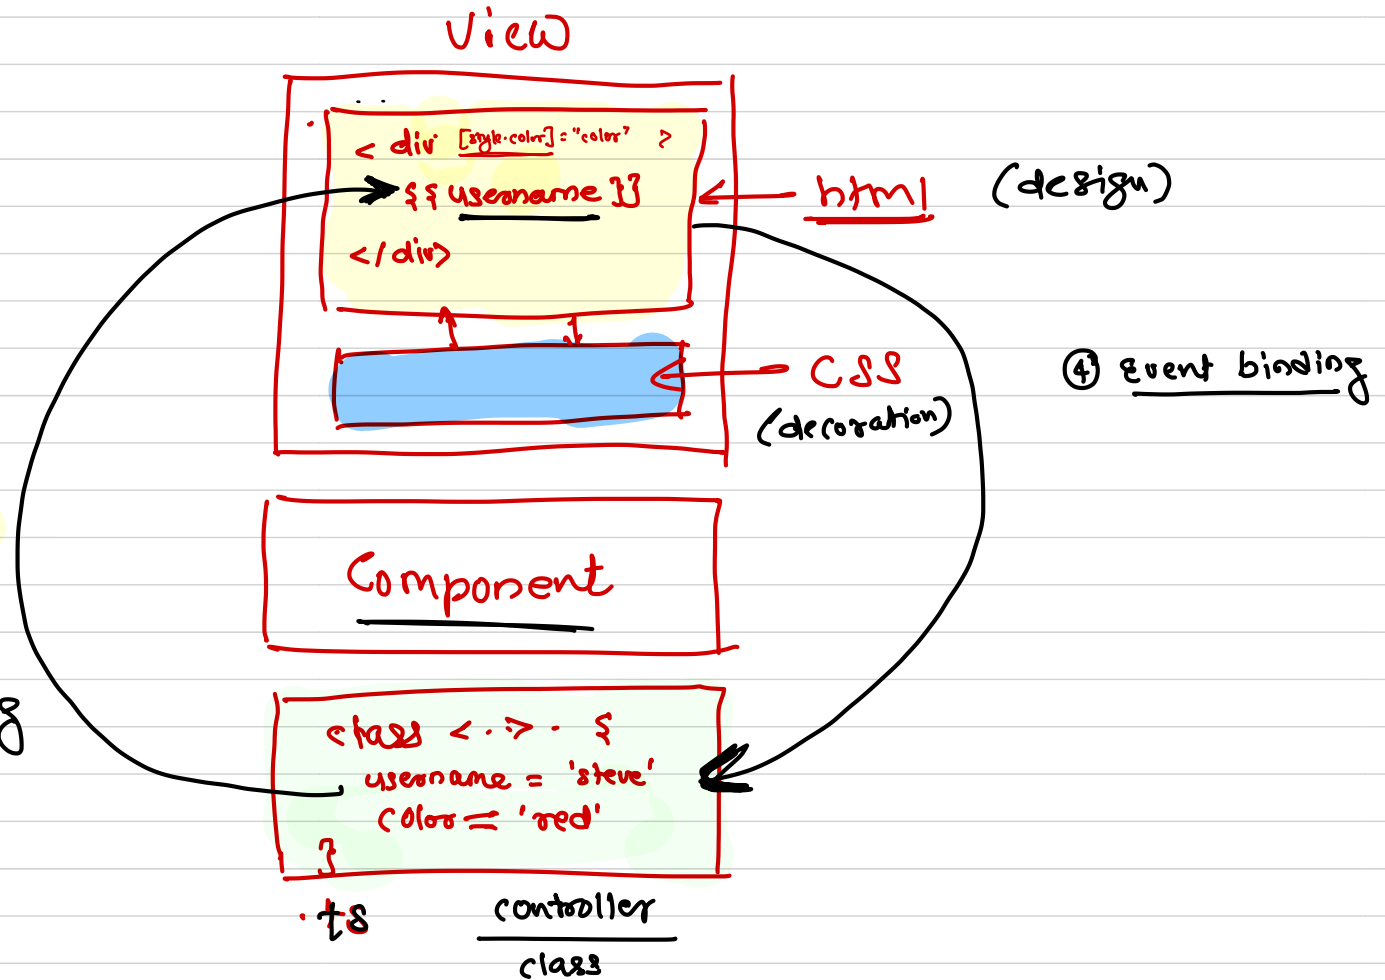 View
< div [style.color] = "color" >
{{ username }}
</div>
html
(design)
CSS
(decoration)
④ Event binding
Component
g
class < . > . {
username = 'steve'
color = 'red'
}
.ts
controller
class